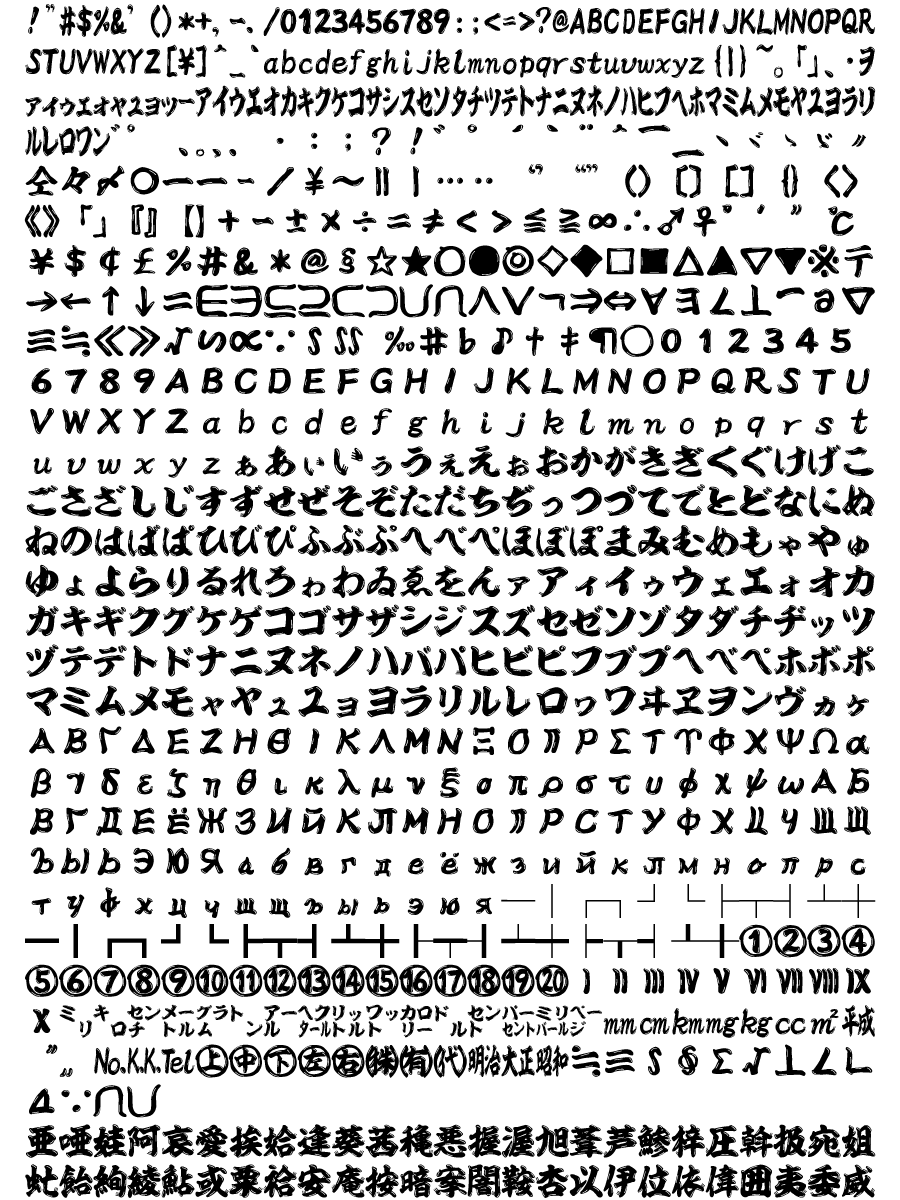 !"#$%&'()*+,−./0123456789:;<=>?@ABCDEFGHIJKLMNOPQR
STUVWXYZ[¥]^_`abcdefghijklmnopqrstuvwxyz{|}~。「」、・ヲ
ァィゥェォャュョッーアイウエオカキクケコサシスセソタチツテトナニヌネノハヒフヘホマミムメモヤユヨラリ
ルレロワン゛゜ 、。,.・:;?!゛゜´`¨^‾_ヽヾゝゞ〃
仝々〆〇ー—‐/¥〜‖|…‥‘’“”()〔〕[]{}〈〉
《》「」『』【】+−±×÷=≠<>≦≧∞∴♂♀°′″℃
¥$¢£%#&*@§☆★○●◎◇◆□■△▲▽▼※〒
→←↑↓〓∈∋⊆⊇⊂⊃∪∩∧∨¬⇒⇔∀∃∠⊥⌒∂∇
≡≒≪≫√∽∝∵∫∬‰♯♭♪†‡¶◯012345
6789ABCDEFGHIJKLMNOPQRSTU
VWXYZabcdefghijklmnopqrst
uvwxyzぁあぃいぅうぇえぉおかがきぎくぐけげこ
ごさざしじすずせぜそぞただちぢっつづてでとどなにぬ
ねのはばぱひびぴふぶぷへべぺほぼぽまみむめもゃやゅ
ゆょよらりるれろゎわゐゑをんァアィイゥウェエォオカ
ガキギクグケゲコゴサザシジスズセゼソゾタダチヂッツ
ヅテデトドナニヌネノハバパヒビピフブプヘベペホボポ
マミムメモャヤュユョヨラリルレロヮワヰヱヲンヴヵヶ
ΑΒΓΔΕΖΗΘΙΚΛΜΝΞΟΠΡΣΤΥΦΧΨΩα
βγδεζηθικλμνξοπρστυφχψωАБ
ВГДЕЁЖЗИЙКЛМНОПРСТУФХЦЧШЩ
ЪЫЬЭЮЯабвгдеёжзийклмнопрс
туфхцчшщъыьэюя─│┌┐┘└├┬┤┴┼
━┃┏┓┛┗┣┳┫┻╋┠┯┨┷┿┝┰┥┸╂①②③④
⑤⑥⑦⑧⑨⑩⑪⑫⑬⑭⑮⑯⑰⑱⑲⑳ⅠⅡⅢⅣⅤⅥⅦⅧⅨ
Ⅹ㍉㌔㌢㍍㌘㌧㌃㌶㍑㍗㌍㌦㌣㌫㍊㌻㎜㎝㎞㎎㎏㏄㎡㍻
〝〟№㏍℡㊤㊥㊦㊧㊨㈱㈲㈹㍾㍽㍼≒≡∫∮∑√⊥∠∟
⊿∵∩∪
亜唖娃阿哀愛挨姶逢葵茜穐悪握渥旭葦芦鯵梓圧斡扱宛姐
虻飴絢綾鮎或粟袷安庵按暗案闇鞍杏以伊位依偉囲夷委威